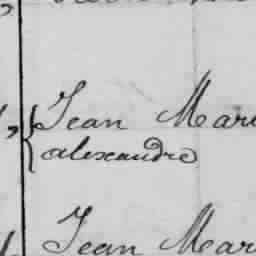 Jean Mari
alexandre
Jean Mari